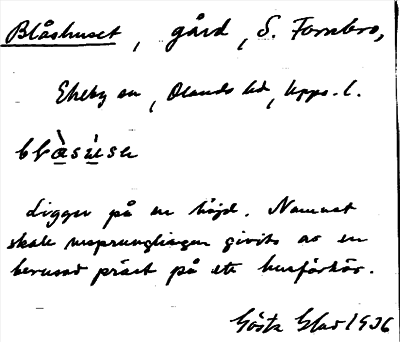 Blåshuset, gård, S. Fornbro,
Ekeby sn, Olands hd, Upps. l.
Ligger på en höjd. Namnet
skall ursprungligen givits av en
berusad präst på ett husförhör.
Gösta 1936